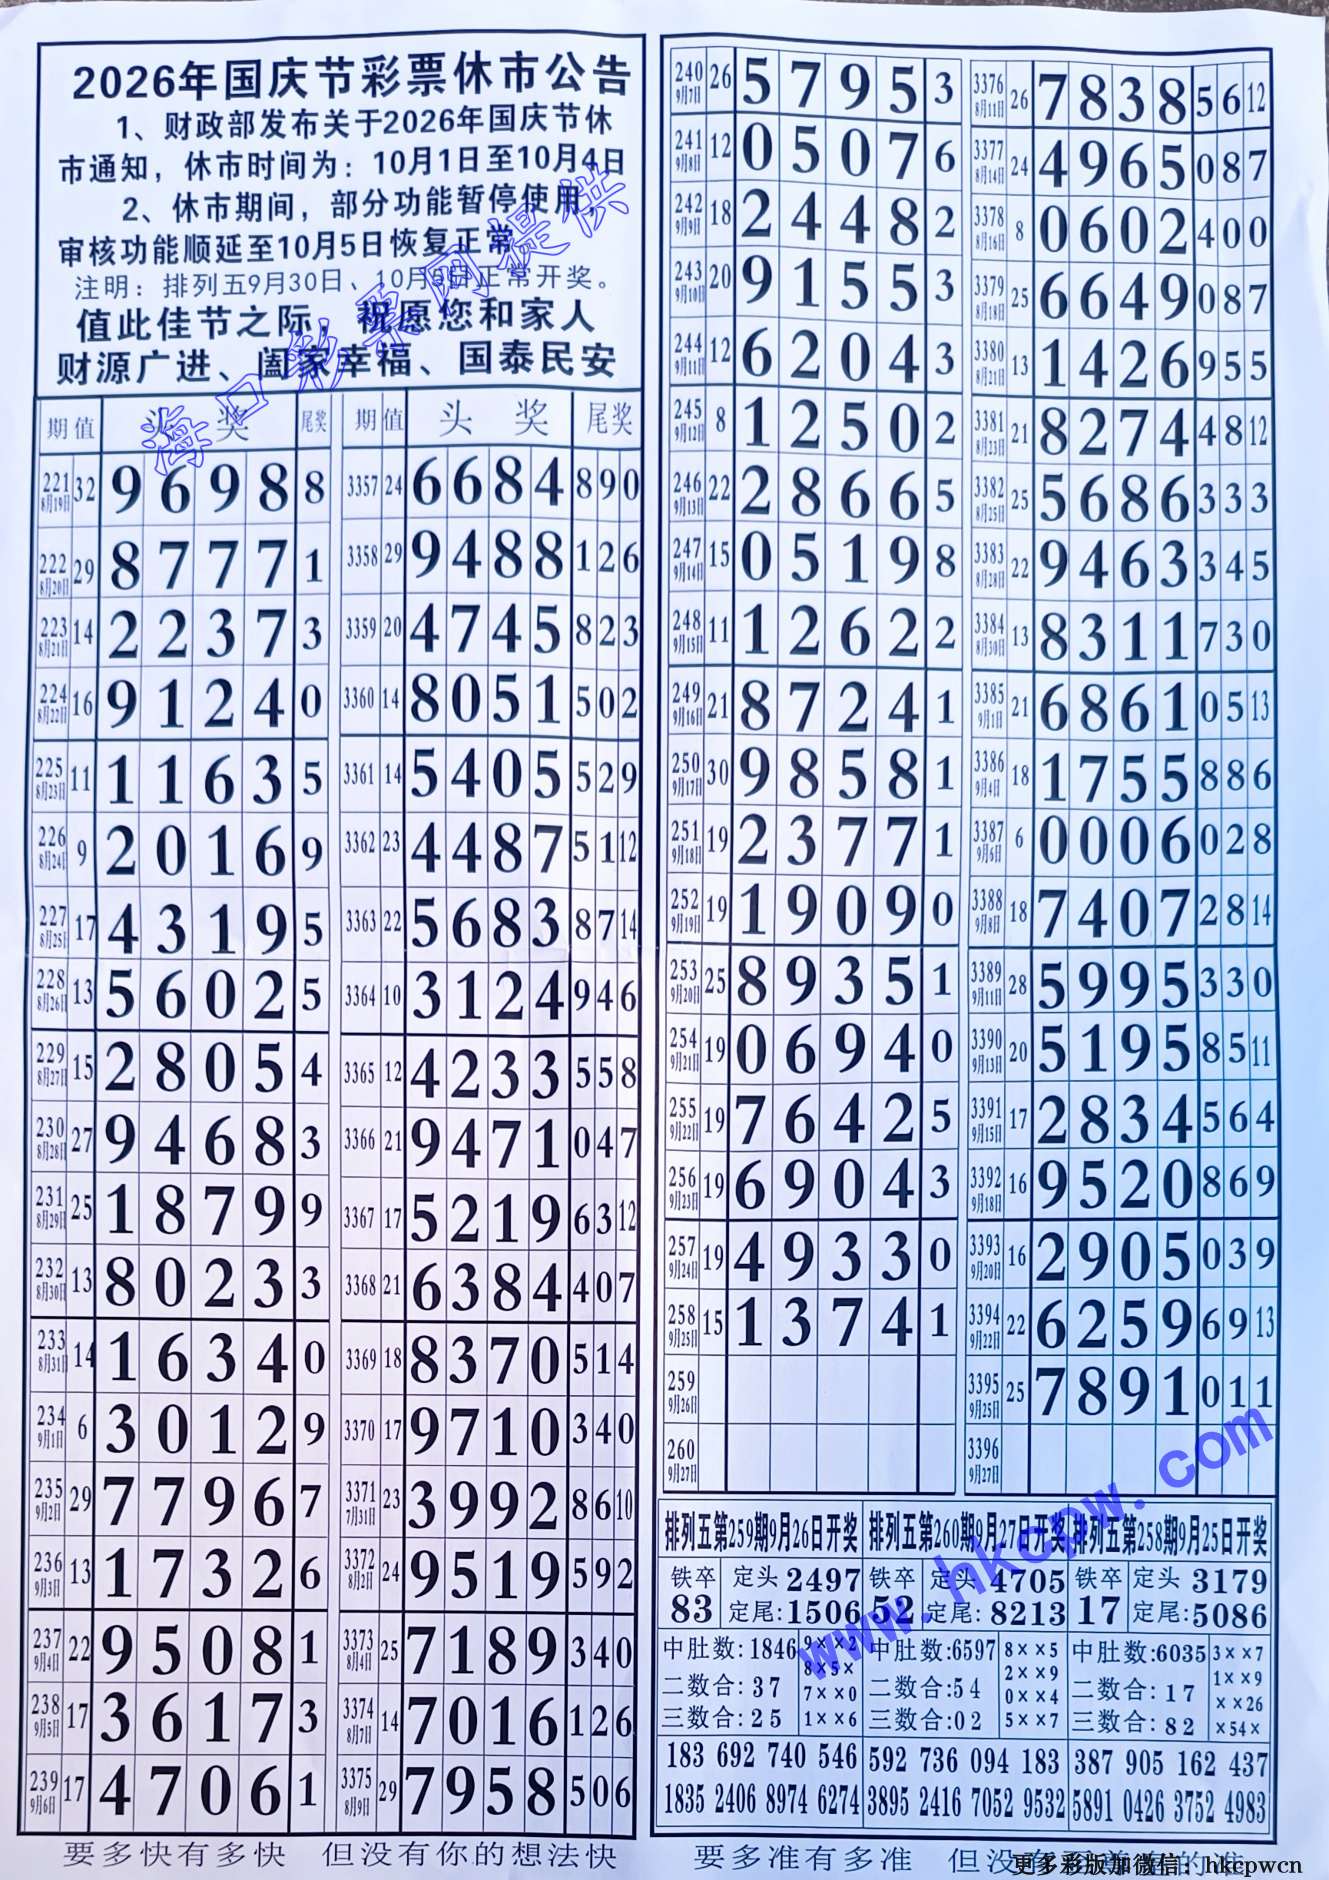 2026年国庆节彩票休市公告
1、财政部发布关于2026年国庆节休
市通知，休市时间为：10月1日至10月4日
2、休市期间，部分功能暂停使用，
审核功能顺延至10月5日恢复正常
注明：排列五9月30日、10月5日正常开奖。
值此佳节之际，祝愿您和家人
财源广进、阖家幸福、国泰民安
海口彩票网提供
期 值 头 奖 尾奖 期 值 头 奖 尾奖
221 8月19日 32 9 6 9 8 8 3357 24 6 6 8 4 8 9 0
222 8月20日 29 8 7 7 7 1 3358 29 9 4 8 8 1 2 6
223 8月21日 14 2 2 3 7 3 3359 20 4 7 4 5 8 2 3
224 8月22日 16 9 1 2 4 0 3360 14 8 0 5 1 5 0 2
225 8月23日 11 1 1 6 3 5 3361 14 5 4 0 5 5 2 9
226 8月24日 9 2 0 1 6 9 3362 23 4 4 8 7 5 1 12
227 8月25日 17 4 3 1 9 5 3363 22 5 6 8 3 8 7 14
228 8月26日 13 5 6 0 2 5 3364 10 3 1 2 4 9 4 6
229 8月27日 15 2 8 0 5 4 3365 12 4 2 3 3 5 5 8
230 8月28日 27 9 4 6 8 3 3366 21 9 4 7 1 0 4 7
231 8月29日 25 1 8 7 9 9 3367 17 5 2 1 9 6 3 12
232 8月30日 13 8 0 2 3 3 3368 21 6 3 8 4 4 0 7
233 8月31日 14 1 6 3 4 0 3369 18 8 3 7 0 5 1 4
234 9月1日 6 3 0 1 2 9 3370 17 9 7 1 0 3 4 0
235 9月2日 29 7 7 9 6 7 3371 7月31日 23 3 9 9 2 8 6 10
236 9月3日 13 1 7 3 2 6 3372 8月2日 24 9 5 1 9 5 9 2
237 9月4日 22 9 5 0 8 1 3373 8月4日 25 7 1 8 9 3 4 0
238 9月5日 17 3 6 1 7 3 3374 8月7日 14 7 0 1 6 1 2 6
239 9月6日 17 4 7 0 6 1 3375 8月9日 29 7 9 5 8 5 0 6
要多快有多快 但没有你的想法快
240 9月7日 26 5 7 9 5 3 3376 8月11日 26 7 8 3 8 5 6 12
241 9月8日 12 0 5 0 7 6 3377 8月14日 24 4 9 6 5 0 8 7
242 9月9日 18 2 4 4 8 2 3378 8月16日 8 0 6 0 2 4 0 0
243 9月10日 20 9 1 5 5 3 3379 8月18日 25 6 6 4 9 0 8 7
244 9月11日 12 6 2 0 4 3 3380 8月21日 13 1 4 2 6 9 5 5
245 9月12日 8 1 2 5 0 2 3381 8月23日 21 8 2 7 4 4 8 12
246 9月13日 22 2 8 6 6 5 3382 8月25日 25 5 6 8 6 3 3 3
247 9月14日 15 0 5 1 9 8 3383 8月28日 22 9 4 6 3 3 4 5
248 9月15日 11 1 2 6 2 2 3384 8月30日 13 8 3 1 1 7 3 0
249 9月16日 21 8 7 2 4 1 3385 9月1日 21 6 8 6 1 0 5 13
250 9月17日 30 9 8 5 8 1 3386 9月4日 18 1 7 5 5 8 8 6
251 9月18日 19 2 3 7 7 1 3387 9月6日 6 0 0 0 6 0 2 8
252 9月19日 19 1 9 0 9 0 3388 9月8日 18 7 4 0 7 2 8 14
253 9月20日 25 8 9 3 5 1 3389 9月11日 28 5 9 9 5 3 3 0
254 9月21日 19 0 6 9 4 0 3390 9月13日 20 5 1 9 5 8 5 11
255 9月22日 19 7 6 4 2 5 3391 9月15日 17 2 8 3 4 5 6 4
256 9月23日 19 6 9 0 4 3 3392 9月18日 16 9 5 2 0 8 6 9
257 9月24日 19 4 9 3 3 0 3393 9月20日 16 2 9 0 5 0 3 9
258 9月25日 15 1 3 7 4 1 3394 9月22日 22 6 2 5 9 6 9 13
259 9月26日 3395 9月25日 25 7 8 9 1 0 1 1
260 9月27日 3396 9月27日
排列五第259期9月26日开奖 排列五第260期9月27日开奖 排列五第258期9月25日开奖
铁卒 定头 2497 铁卒 定头 4705 铁卒 定头 3179
83 定尾:1506 52 定尾: 8213 17 定尾:5086
中肚数: 1846 9××2 中肚数:6597 8××5 中肚数:6035 3××7
二数合: 37 8×5× 二数合:54 2××9 二数合: 17 1××9
三数合: 25 7××0 三数合:02 0××4 三数合: 82 ××26
1××6 5××7 ×54×
183 692 740 546 592 736 094 183 387 905 162 437
1835 2406 8974 6274 3895 2416 7052 9532 5891 0426 3752 4983
www.hkcpw.com
要多准有多准 但没有
的准
更多彩版加微信：hkcpwcn